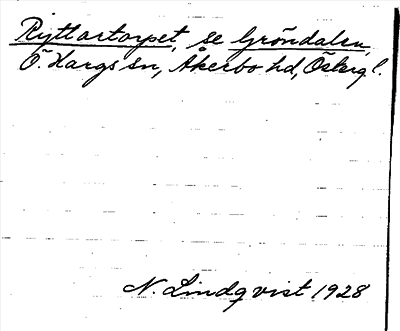 Ryttartorpet, se Gröndalen,
Ö. Hargs sn, Åkerbo hd, Österg l.
N. Lindqvist 1928